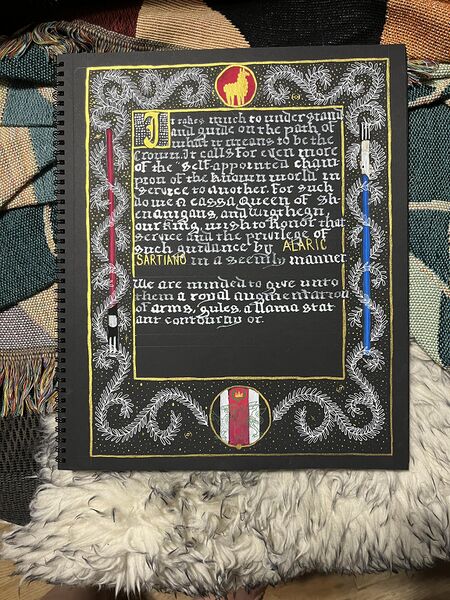 It takes much to understand
and guide on the path of
what it means to be the
Crown. It calls for even more
of the self-appointed cham
pion of the known world in
service to another. For such
do we Queen of Sh
enanigans, and Wigthegn,
our king, wish to honor that
service and the privilege of
such guidance by ALARIC
SARTIANO in a seemly manner
We are minded to give unto
them a royal augmentation
of arms, gules, a llama stat
ant contourny or.